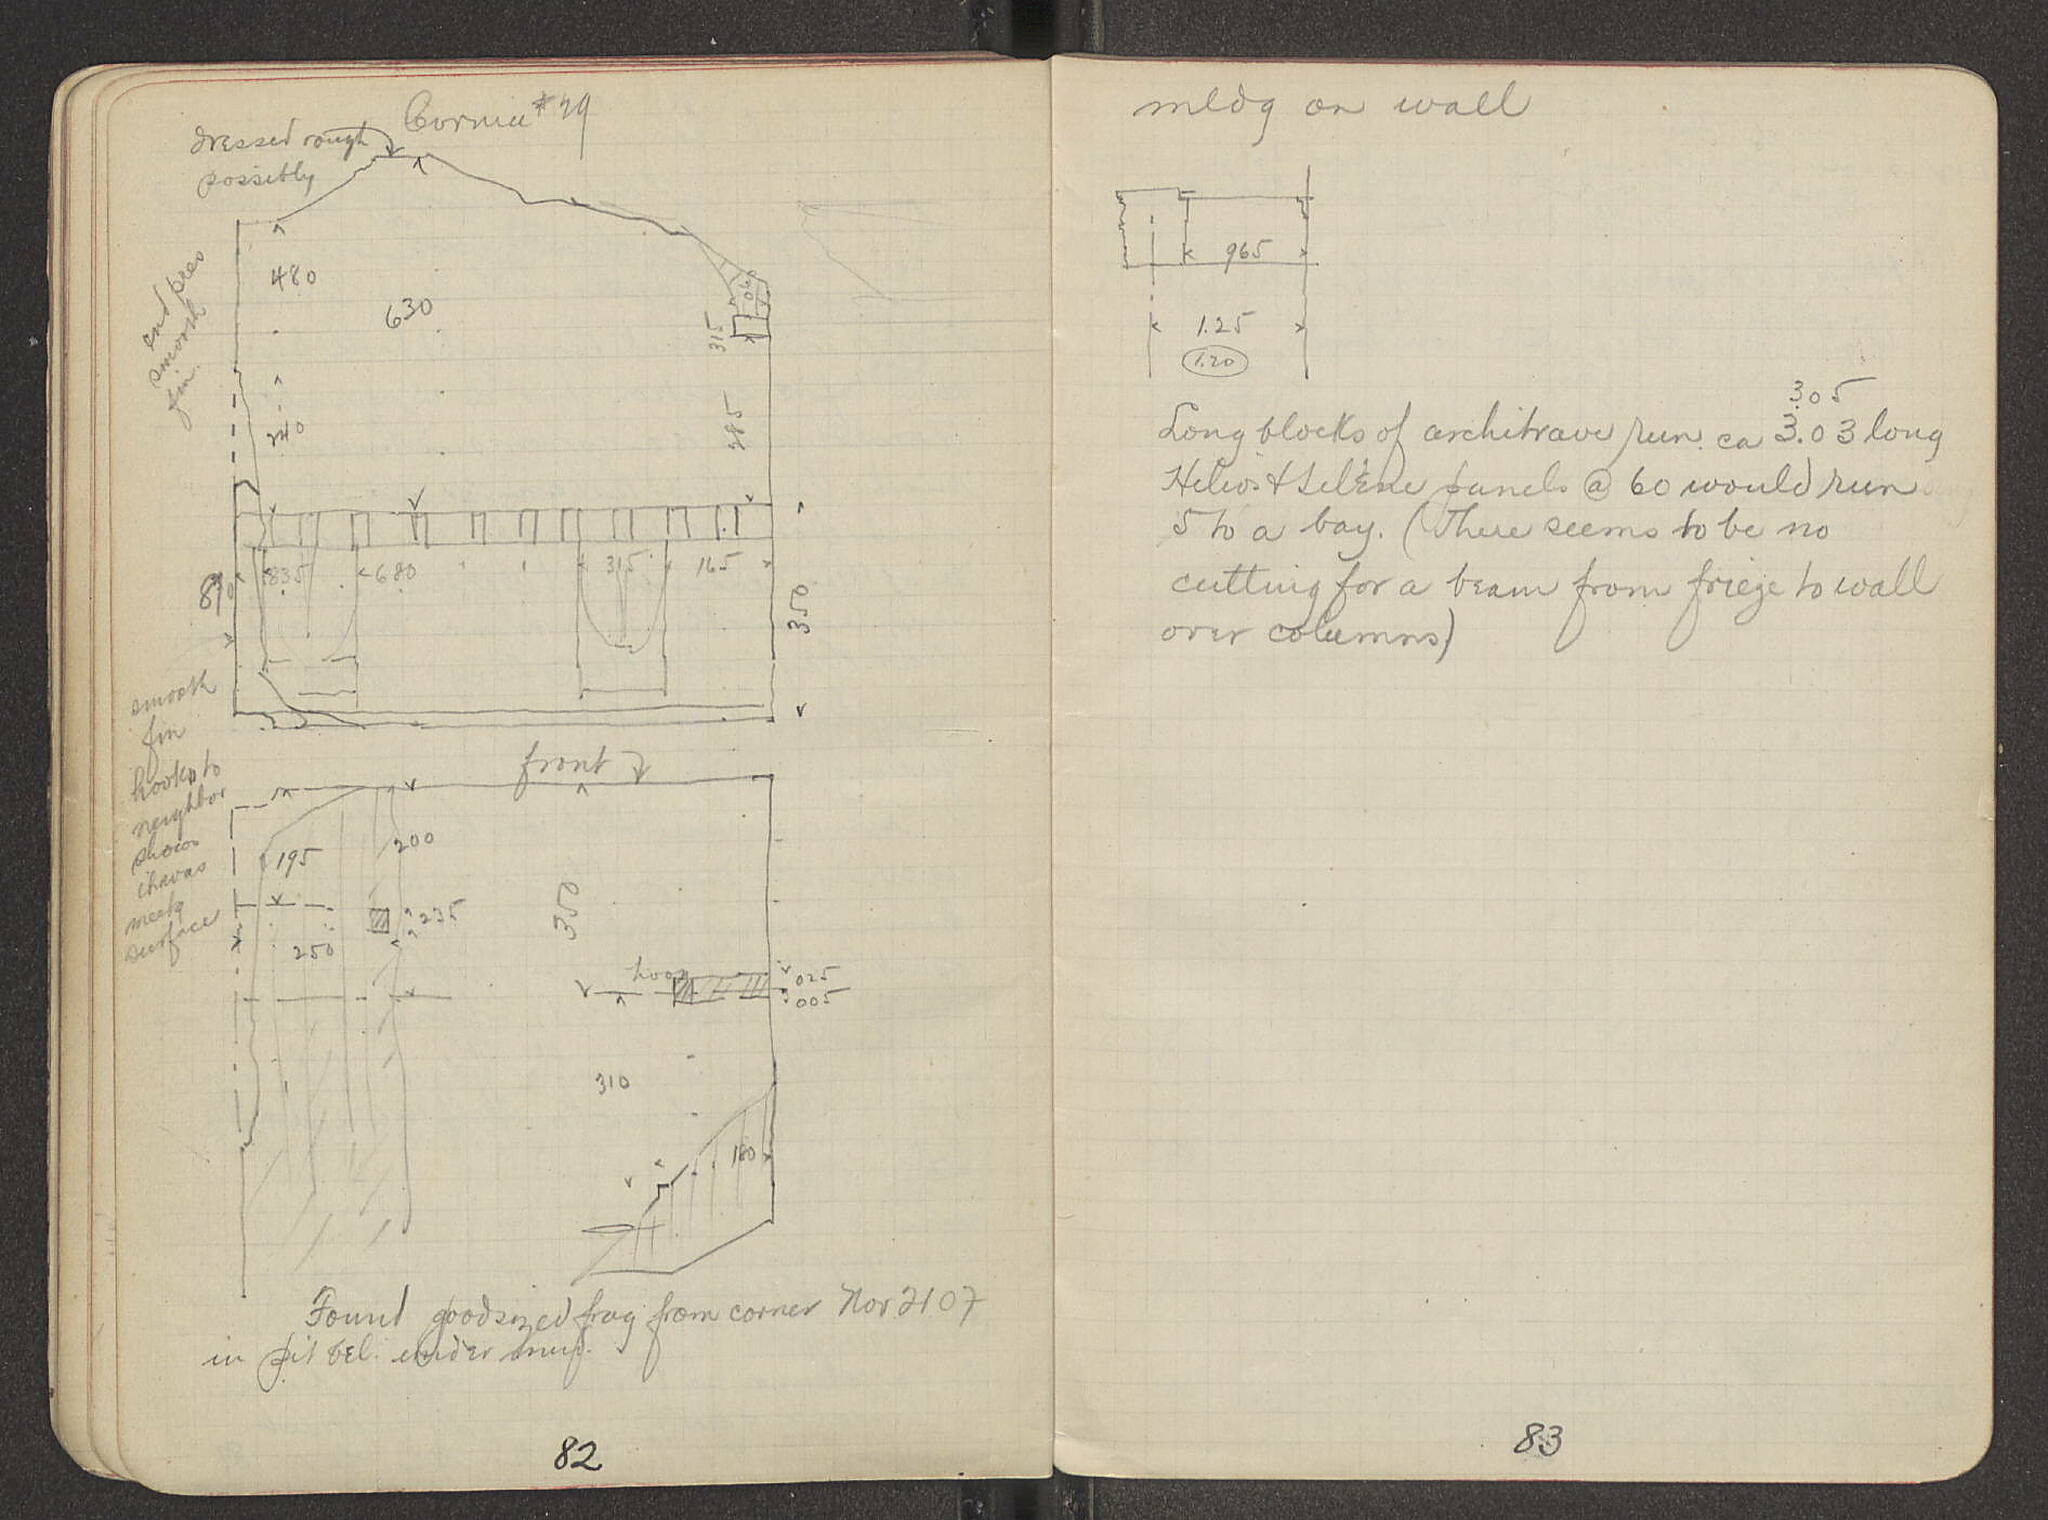 Cornice #29
dressed rough
possibly
end pres
smooth
fin.
480
630
240
315
040
285
835
680
315
165
890
350
smooth
fin
hooks to
neighbor
shows
it was
meetg
surface
front
195
200
235
250
350
hook
025
005
310
180
Found goodsized frag from corner Nov 21 07
in pit bel. under
82
mldg on wall
965
1.25
1.20
3.05
Long blocks of architrave run ca 3.03 long
Helios & Selene panels @ 60 would run
5 to a bay. (There seems to be no
cutting for a beam from frieze to wall
over columns)
83